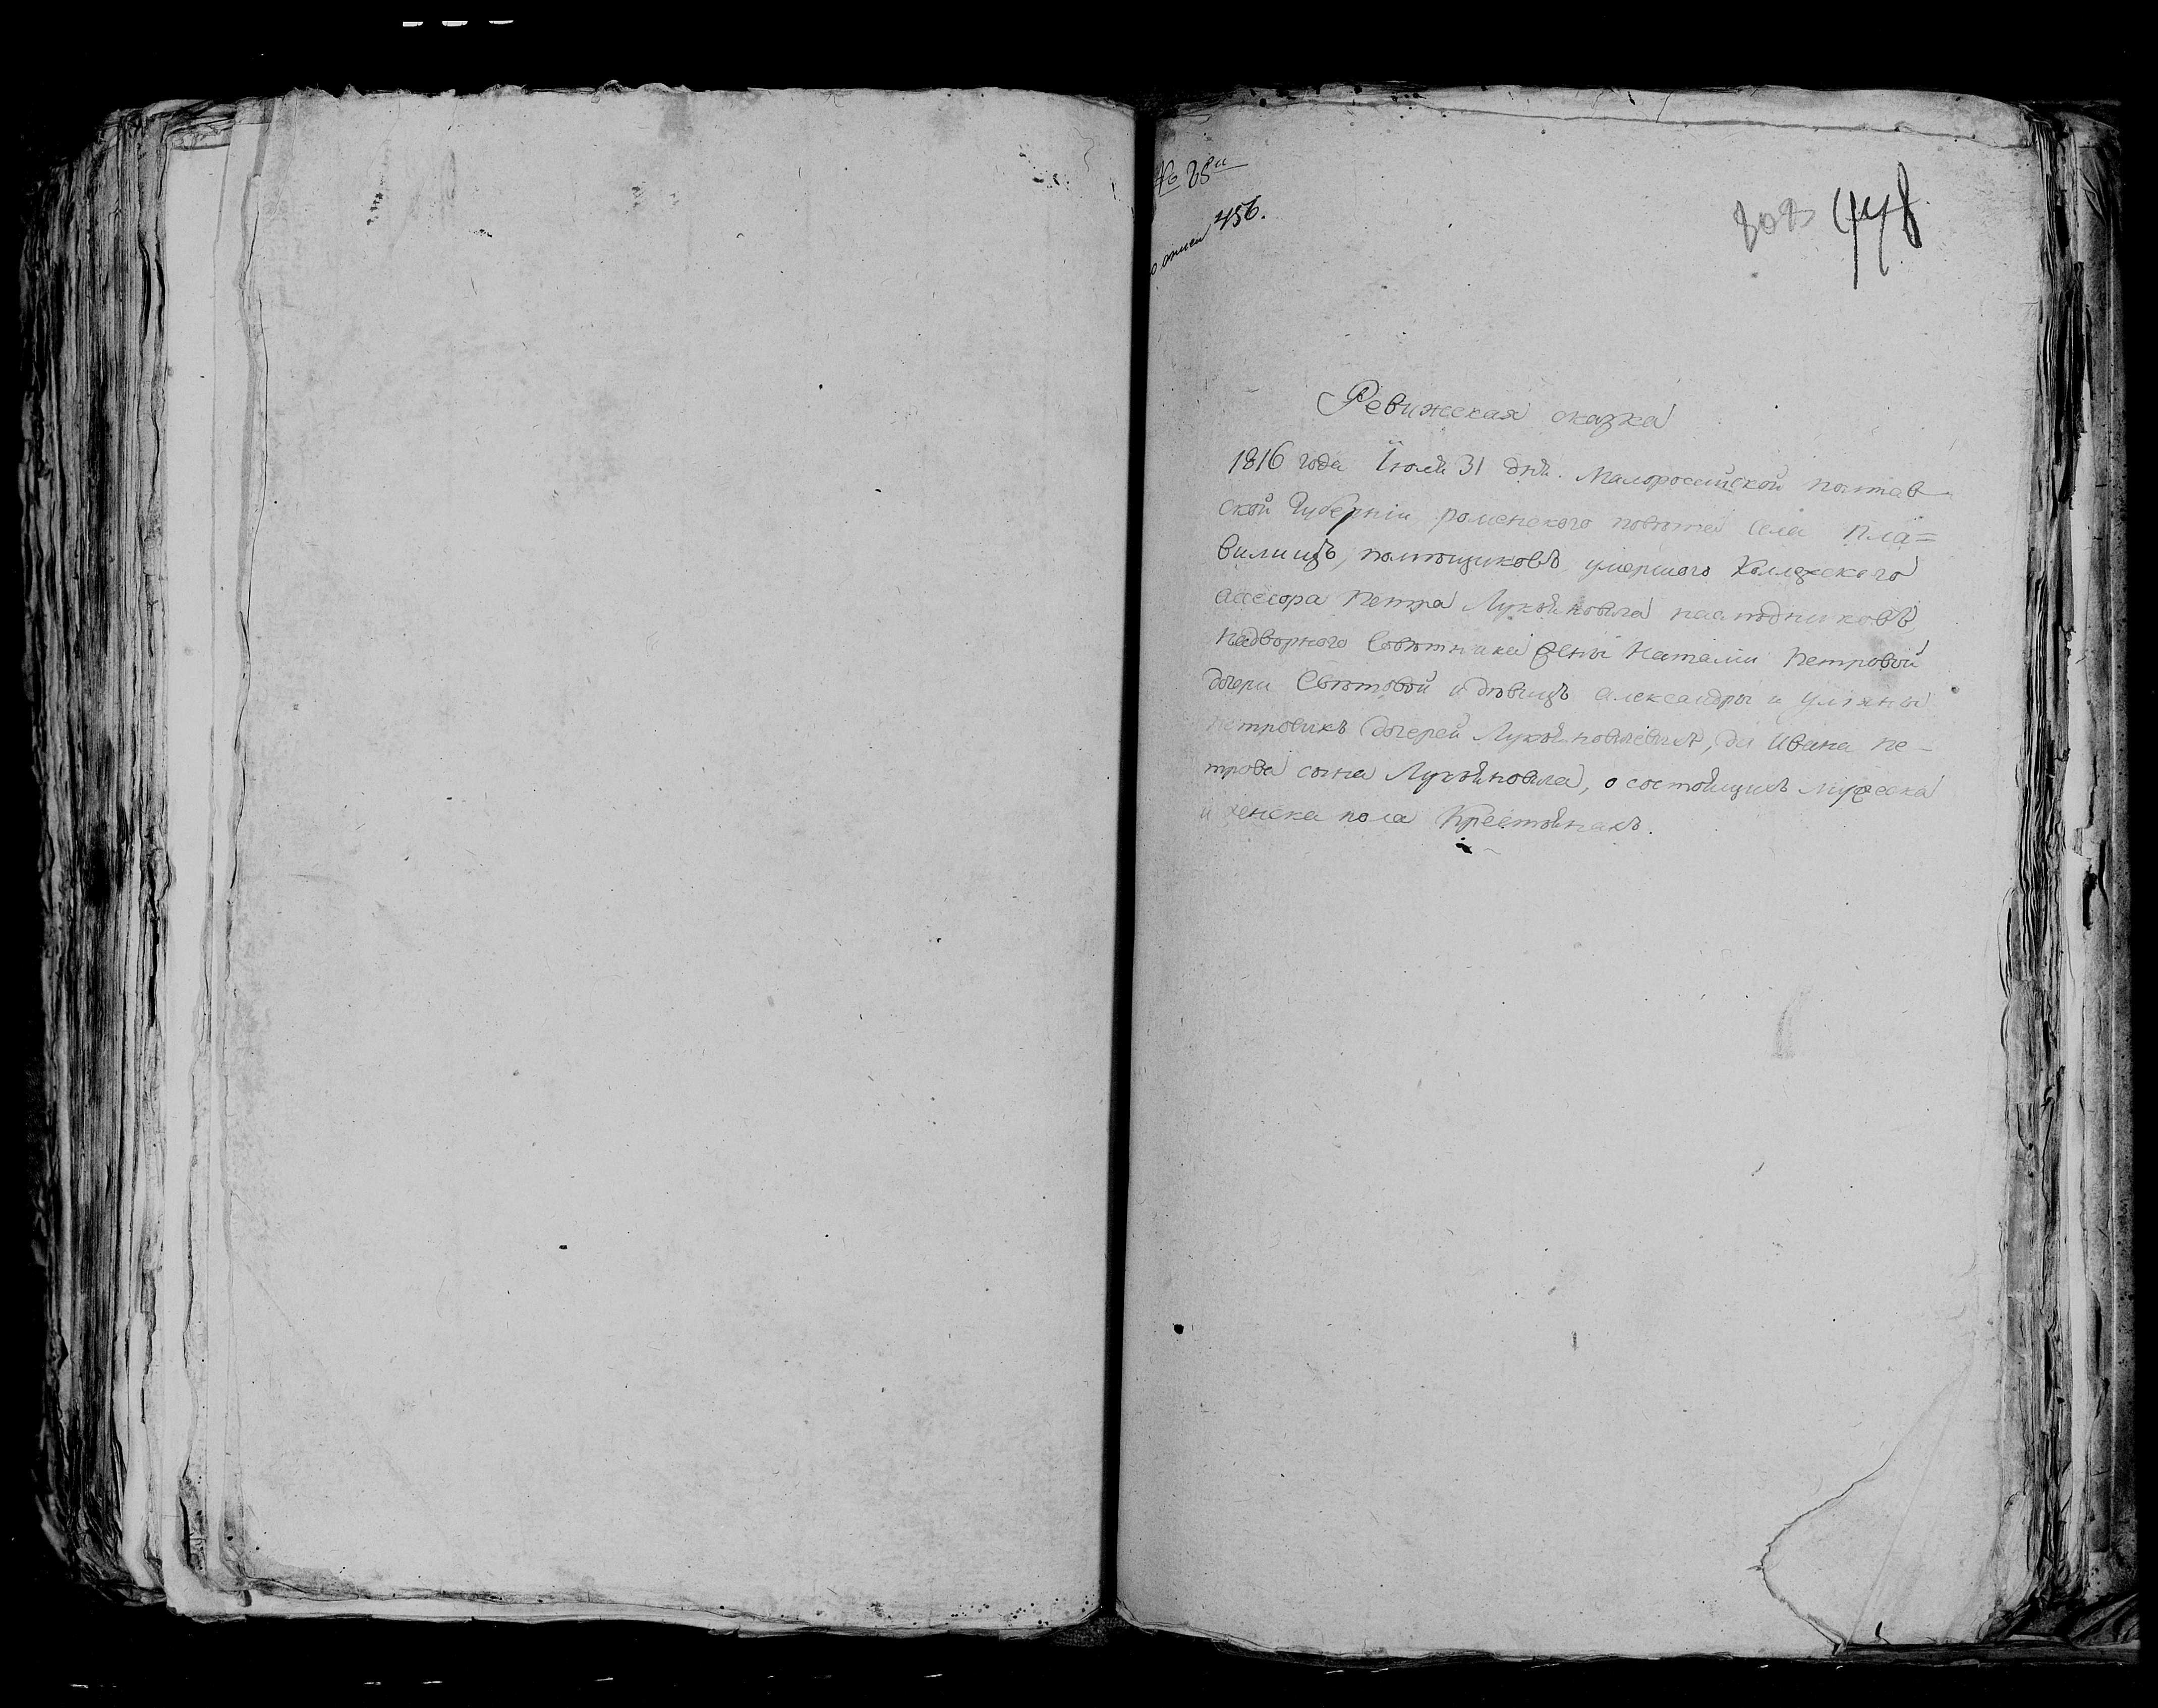 № 88й
о описи 456.
448
Ревижская сказка
1816 года Іюля 31 дня. Малоросийской полтав
ской Губерніи роменского повѣта села Пла=
вилищъ, помѣщиковъ умершого Коллежского
ассесора Петра Лукяновича наслѣдниковъ,
надворного Совѣтника жены Наталіи Петровой
дочери Свѣтовой и дѣвицъ александры и Уліяны
Петровихъ дочерей Лукяновичевихъ, да Ивана пе-
трова сына Лукяновича, о состоящихъ мужеска
и женска пола Крестянахъ.